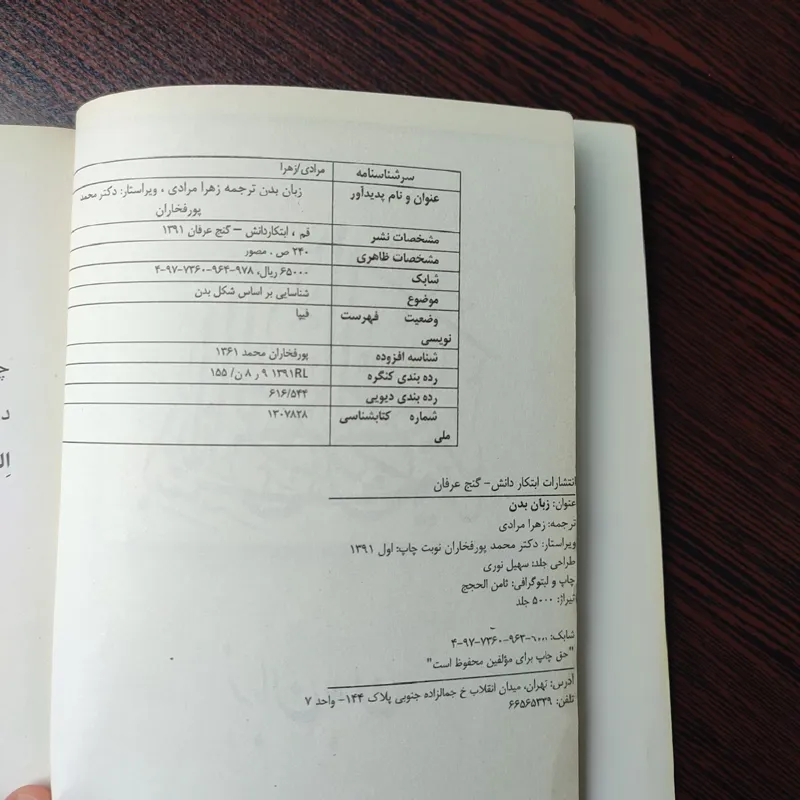 سرشناسنامه مرادی/زهرا
عنوان و نام پدیدآور زبان بدن ترجمه زهرا مرادی ، ویراستار: دکتر محمد
پورفخاران
مشخصات نشر قم ، ابتکاردانش – گنج عرفان ۱۳۹۱
مشخصات ظاهری ۲۴۰ ص . مصور
شابک ۶۵۰۰۰ ریال، ۹۷۸-۹۶۴-۷۳۶۰-۹۷-۴
موضوع شناسایی بر اساس شکل بدن
وضعیت فهرست فیپا
نویسی
شناسه افزوده پورفخاران محمد ۱۳۶۱
رده بندی کنگره ۱۳۹۱RL ۹ ر ۸ ن/ ۱۵۵
رده بندی دیویی ۶۱۶/۵۴۴
شماره کتابشناسی ۱۳۰۷۸۲۸
ملی
انتشارات ابتکار دانش- گنج عرفان
عنوان: زبان بدن
ترجمه: زهرا مرادی
ویراستار: دکتر محمد پورفخاران نوبت چاپ: اول ۱۳۹۱
طراحی جلد: سهیل نوری
چاپ و لیتوگرافی: ثامن الحجج
تیراژ: ۵۰۰۰ جلد
شابک: ۹۶۴-۷۳۶۰-۹۷-۴
"حق چاپ برای مؤلفین محفوظ است"
آدرس: تهران، میدان انقلاب خ جمالزاده جنوبی پلاک ۱۴۴- واحد ۷
تلفن: ۶۶۵۶۵۳۲۹